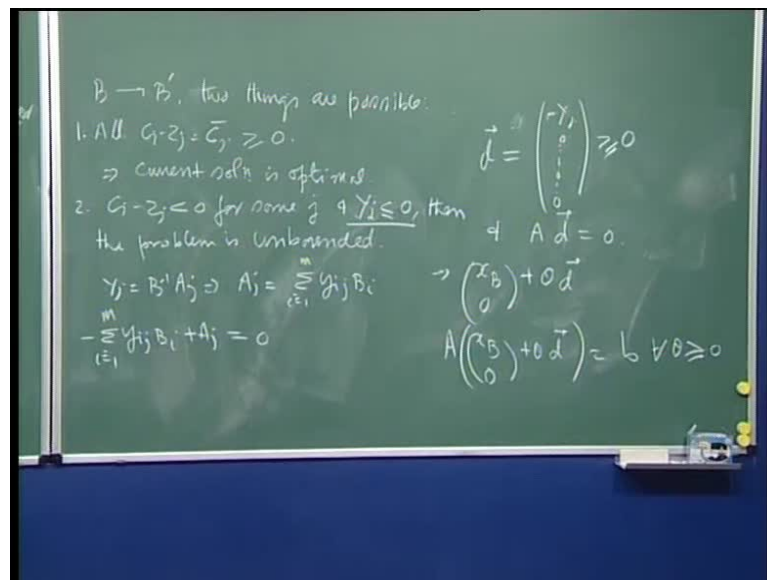 B → B', two things are possible:
1. All Cj - Zj = C̄j ≥ 0.
⇒ current soln is optimal
2. Cj - Zj < 0 for some j & Yj ≤ 0, then
the problem is unbounded.
Yj = B⁻¹Aj ⇒ Aj = ∑_{i=1}^{m} yij Bi
- ∑_{i=1}^{m} yij Bi + Aj = 0
d⃗ = (-Yj 0 1 0 0) ≥ 0
& A d⃗ = 0.
→ (xB 0) + θ d⃗
A((xB 0) + θ d⃗) = b ∀ θ ≥ 0